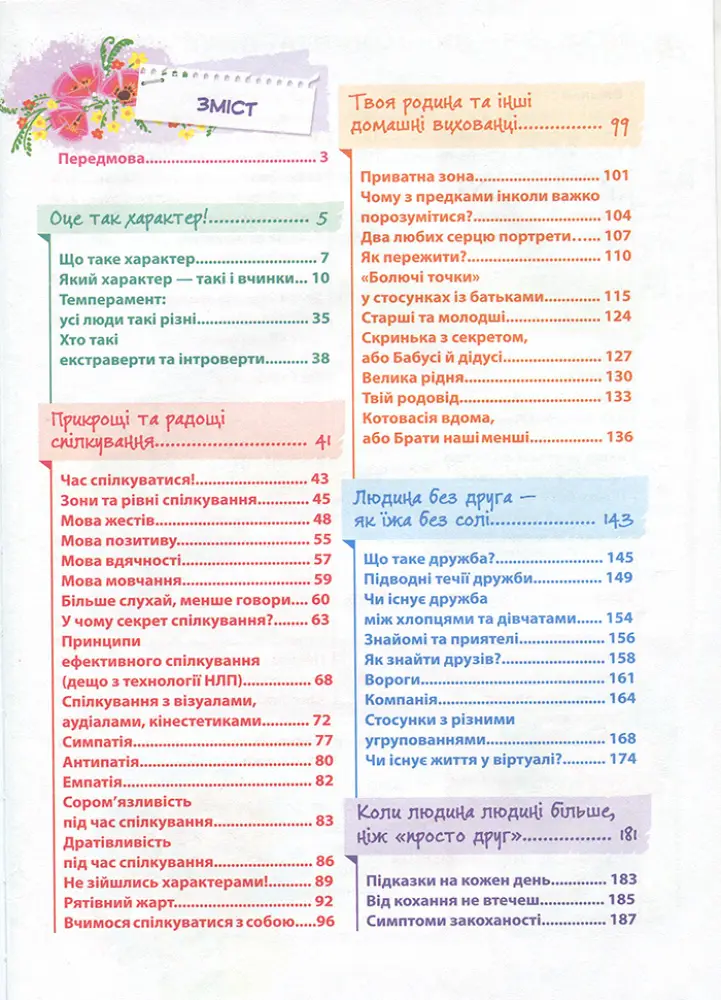 ЗМІСТ
Передмова.......................................... 3
Оце так характер!.................... 5
Що таке характер............................. 7
Який характер — такі і вчинки... 10
Темперамент:
усі люди такі різні........................... 35
Хто такі
екстраверти та інтроверти.......... 38
Прикрощі та радощі
спілкування.............................. 41
Час спілкуватися!........................... 43
Зони та рівні спілкування............ 45
Мова жестів..................................... 48
Мова позитиву................................ 55
Мова вдячності............................... 57
Мова мовчання............................... 59
Більше слухай, менше говори.... 60
У чому секрет спілкування?........ 63
Принципи
ефективного спілкування
(дещо з технології НЛП)................. 68
Спілкування з візуалами,
аудіалами, кінестетиками............ 72
Симпатія........................................... 77
Антипатія......................................... 80
Емпатія............................................. 82
Сором’язливість
під час спілкування........................ 83
Дратівливість
під час спілкування........................ 86
Не зійшлись характерами!.......... 89
Рятівний жарт................................. 92
Вчимося спілкуватися з собою....96
Твоя родина та інші
домашні вихованці................. 99
Приватна зона............................... 101
Чому з предками інколи важко
порозумітися?............................... 104
Два любих серцю портрети...... 107
Як пережити?................................ 110
«Болючі точки»
у стосунках із батьками............. 115
Старші та молодші....................... 124
Скринька з секретом,
або Бабусі й дідусі........................ 127
Велика рідня................................. 130
Твій родовід................................... 133
Котовасія вдома,
або Брати наші менші................. 136
Людина без друга —
як їжа без солі..................... 143
Що таке дружба?.......................... 145
Підводні течії дружби................. 149
Чи існує дружба
між хлопцями та дівчатами...... 154
Знайомі та приятелі..................... 156
Як знайти друзів?......................... 158
Вороги............................................ 161
Компанія........................................ 164
Стосунки з різними
угрупованнями............................. 168
Чи існує життя у віртуалі?.......... 174
Коли людина людині більше,
ніж «просто друг».................. 181
Підказки на кожен день............. 183
Від кохання не втечеш................ 185
Симптоми закоханості................ 187